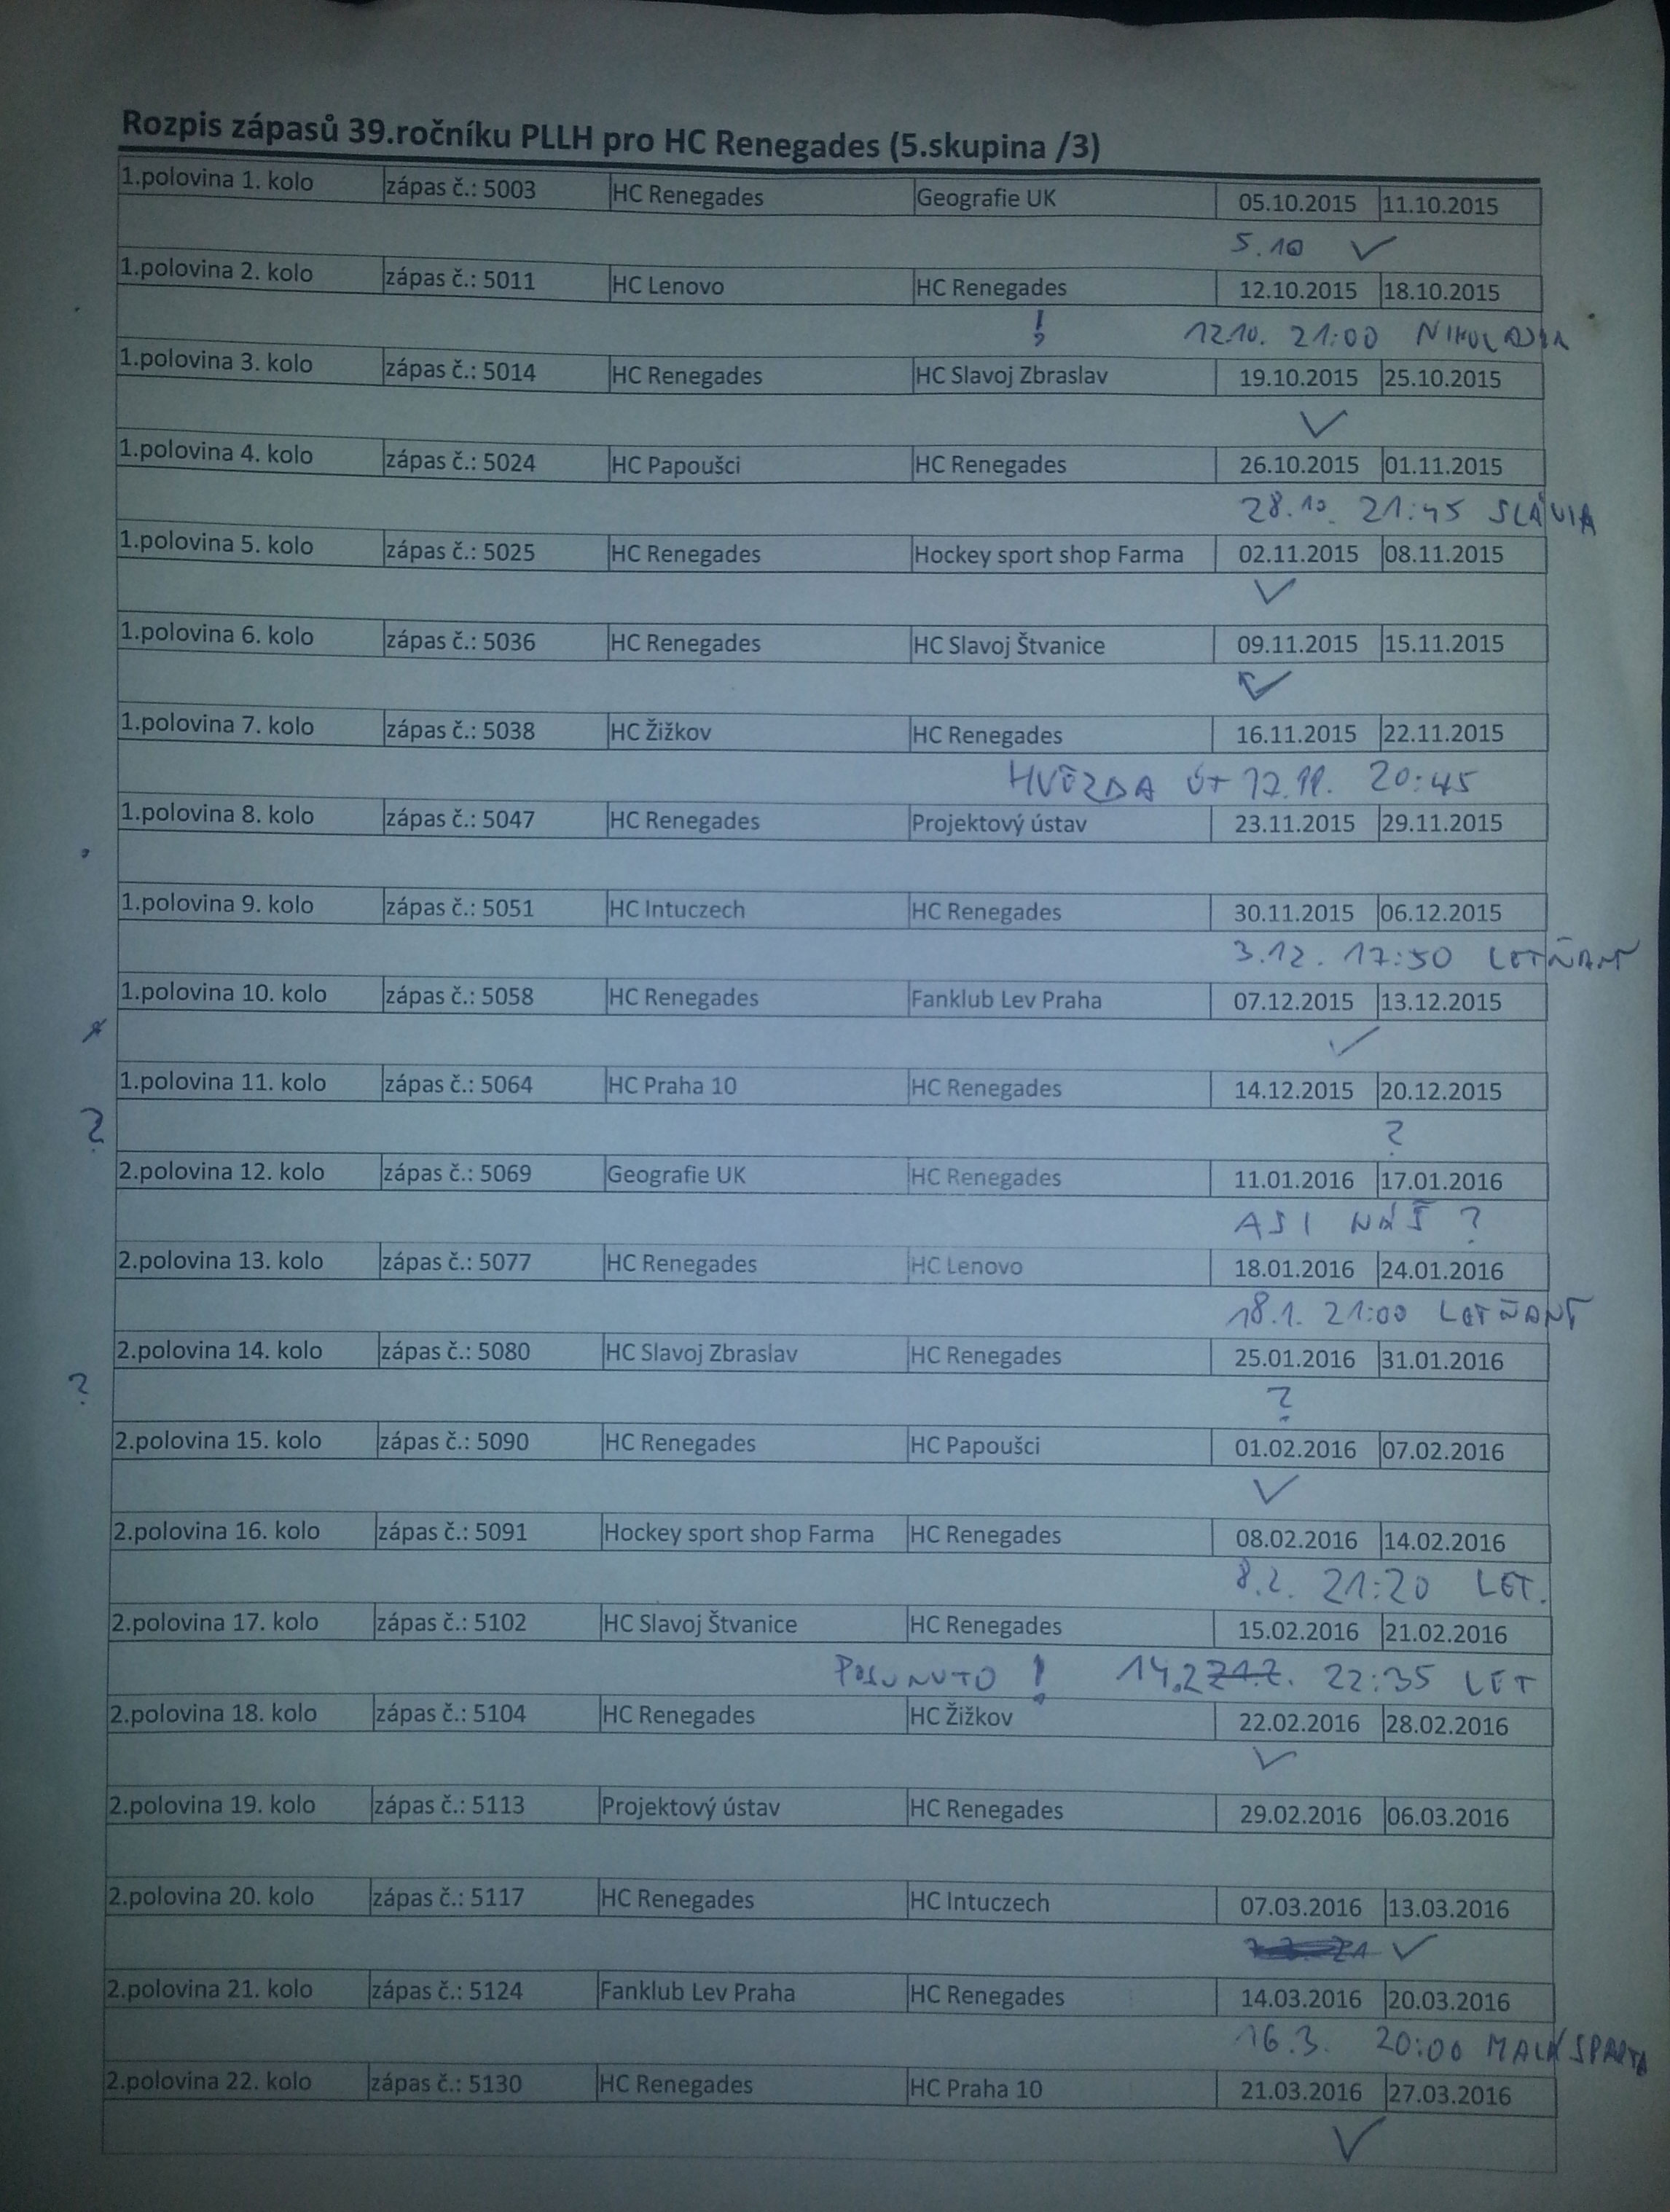 Rozpis zápasů 39.ročníku PLLH pro HC Renegades (5.skupina /3)
1.polovina 1. kolo zápas č.: 5003 HC Renegades Geografie UK 05.10.2015 11.10.2015
5.10 ✓
1.polovina 2. kolo zápas č.: 5011 HC Lenovo HC Renegades 12.10.2015 18.10.2015
! 12.10. 21:00
1.polovina 3. kolo zápas č.: 5014 HC Renegades HC Slavoj Zbraslav 19.10.2015 25.10.2015
✓
1.polovina 4. kolo zápas č.: 5024 HC Papoušci HC Renegades 26.10.2015 01.11.2015
28.10. 21:45 SLÁVIA
1.polovina 5. kolo zápas č.: 5025 HC Renegades Hockey sport shop Farma 02.11.2015 08.11.2015
✓
1.polovina 6. kolo zápas č.: 5036 HC Renegades HC Slavoj Štvanice 09.11.2015 15.11.2015
✓
1.polovina 7. kolo zápas č.: 5038 HC Žižkov HC Renegades 16.11.2015 22.11.2015
HVĚZDA ÚT 17.11. 20:45
1.polovina 8. kolo zápas č.: 5047 HC Renegades Projektový ústav 23.11.2015 29.11.2015
1.polovina 9. kolo zápas č.: 5051 HC Intuczech HC Renegades 30.11.2015 06.12.2015
3.12. 17:50 LETŇANY
1.polovina 10. kolo zápas č.: 5058 HC Renegades Fanklub Lev Praha 07.12.2015 13.12.2015
✓
1.polovina 11. kolo zápas č.: 5064 HC Praha 10 HC Renegades 14.12.2015 20.12.2015
? ?
2.polovina 12. kolo zápas č.: 5069 Geografie UK HC Renegades 11.01.2016 17.01.2016
ASI NÁŠ ?
2.polovina 13. kolo zápas č.: 5077 HC Renegades HC Lenovo 18.01.2016 24.01.2016
18.1. 21:00 LETŇANY
2.polovina 14. kolo zápas č.: 5080 HC Slavoj Zbraslav HC Renegades 25.01.2016 31.01.2016
? ?
2.polovina 15. kolo zápas č.: 5090 HC Renegades HC Papoušci 01.02.2016 07.02.2016
✓
2.polovina 16. kolo zápas č.: 5091 Hockey sport shop Farma HC Renegades 08.02.2016 14.02.2016
8.2. 21:20 LET.
2.polovina 17. kolo zápas č.: 5102 HC Slavoj Štvanice HC Renegades 15.02.2016 21.02.2016
POSUNUTO ! 14.2 21.2. 22:35 LET
2.polovina 18. kolo zápas č.: 5104 HC Renegades HC Žižkov 22.02.2016 28.02.2016
✓
2.polovina 19. kolo zápas č.: 5113 Projektový ústav HC Renegades 29.02.2016 06.03.2016
2.polovina 20. kolo zápas č.: 5117 HC Renegades HC Intuczech 07.03.2016 13.03.2016
✓
2.polovina 21. kolo zápas č.: 5124 Fanklub Lev Praha HC Renegades 14.03.2016 20.03.2016
16.3. 20:00 MALÁ SPARTA
2.polovina 22. kolo zápas č.: 5130 HC Renegades HC Praha 10 21.03.2016 27.03.2016
✓